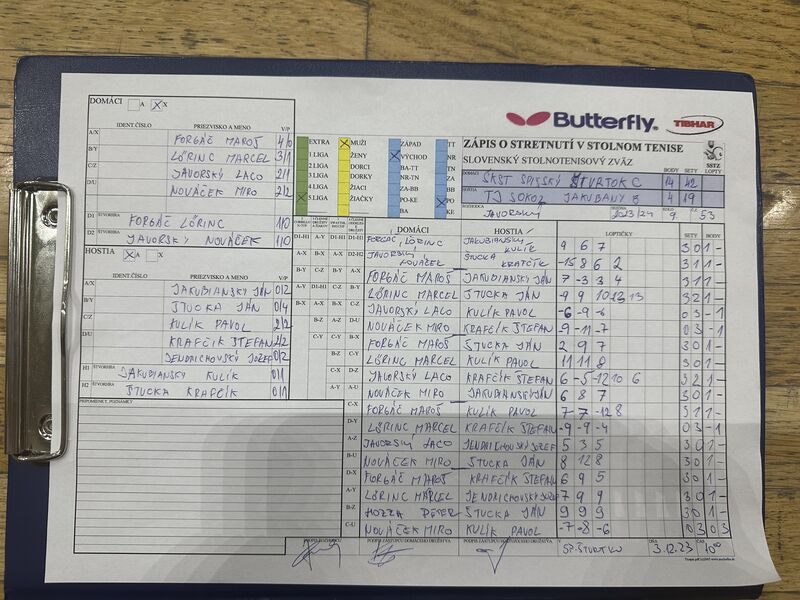 DOMÁCI A X X
IDENT.ČÍSLO PRIEZVISKO A MENO V/P
A/X FORGÁČ MAROŠ 4/0
B/Y LŐRINC MARCEL 3/1
C/Z JAVORSKÝ LACO 2/1
D/U NOVÁČEK MIRO 2/2
D1 ŠTVORHRA FORGÁČ LŐRINC 1/0
D2 ŠTVORHRA JAVORSKÝ NOVÁČEK 1/0
HOSTIA X A X
IDENT.ČÍSLO PRIEZVISKO A MENO V/P
A/X JAKUBIANSKY JÁN 0/2
B/Y ŠTUCKA JÁN 0/4
C/Z KULÍK PAVOL 2/2
D/U KRAFČÍK ŠTEFAN 2/2
JENDRICHOVSKÝ JOZEF 0/2
H1 ŠTVORHRA JAKUBIANSKY KULÍK 0/1
H2 ŠTVORHRA ŠTUCKA KRAFČÍK 0/1
PRIPOMIENKY, POZNÁMKY
EXTRA
1.LIGA
2.LIGA
3.LIGA
4.LIGA
5.LIGA
MUŽI
ŽENY
DORCI
DORKY
ŽIACI
ŽIAČKY
ZÁPAD
VÝCHOD
BA-TT
NR-TN
ZA-BB
PO-KE
TT
NR
BB
PO
KE
Butterfly
TIBHAR
ZÁPIS O STRETNUTÍ V STOLNOM TENISE
SLOVENSKÝ STOLNOTENISOVÝ ZVÄZ
SSTZ
BODY SETY LOPTY
DOMÁCI ŠKST SPIŠSKÝ ŠTVRTOK C 14 42
HOSTIA TJ SOKOL JAKUBANY B 4 19
ROZHODCA JAVORSKÝ 2023/24 9 53
DOMÁCI HOSTIA LOPTIČKY SETY BODY
FORGÁČ, LŐRINC JAKUBIANSKY KULÍK 9 6 7 3 0 1 -
JAVORSKÝ NOVÁČEK ŠTUCKA KRAFČÍK -15 8 6 2 3 1 1 -
FORGÁČ MAROŠ JAKUBIANSKY JÁN 7 -3 3 4 3 1 1 -
LŐRINC MARCEL ŠTUCKA JÁN -9 9 10 -13 13 3 2 1 -
JAVORSKÝ LACO KULÍK PAVOL -6 -9 -6 0 3 - 1
NOVÁČEK MIRO KRAFČÍK ŠTEFAN -9 -11 -7 0 3 - 1
FORGÁČ MAROŠ ŠTUCKA JÁN 2 9 7 3 0 1 -
LŐRINC MARCEL KULÍK PAVOL 11 11 8 3 0 1 -
JAVORSKÝ LACO KRAFČÍK ŠTEFAN 6 -5 -12 10 6 3 2 1 -
NOVÁČEK MIRO JAKUBIANSKY JÁN 6 8 7 3 0 1 -
FORGÁČ MAROŠ KULÍK PAVOL 7 -7 -12 8 3 1 1 -
LŐRINC MARCEL KRAFČÍK ŠTEFAN -9 -9 -4 0 3 - 1
JAVORSKÝ LACO JENDRICHOVSKÝ JOZEF 5 3 5 3 0 1 -
NOVÁČEK MIRO ŠTUCKA JÁN 8 12 8 3 0 1 -
FORGÁČ MAROŠ KRAFČÍK ŠTEFAN 6 9 5 3 0 1 -
LŐRINC MARCEL JENDRICHOVSKÝ JOZEF 7 9 9 3 0 1 -
HOZZA PETER ŠTUCKA JÁN 9 9 9 3 0 1 -
NOVÁČEK MIRO KULÍK PAVOL -7 -8 -6 0 3 0 3
PODPIS ROZHODCU PODPIS ZÁSTUPCU DOMÁCEHO DRUŽSTVA PODPIS ZÁSTUPCU HOSŤUJÚCEHO DRUŽSTVA V SP. ŠTVRTKU DŇA 3.12.23 ČAS 10⁰⁰